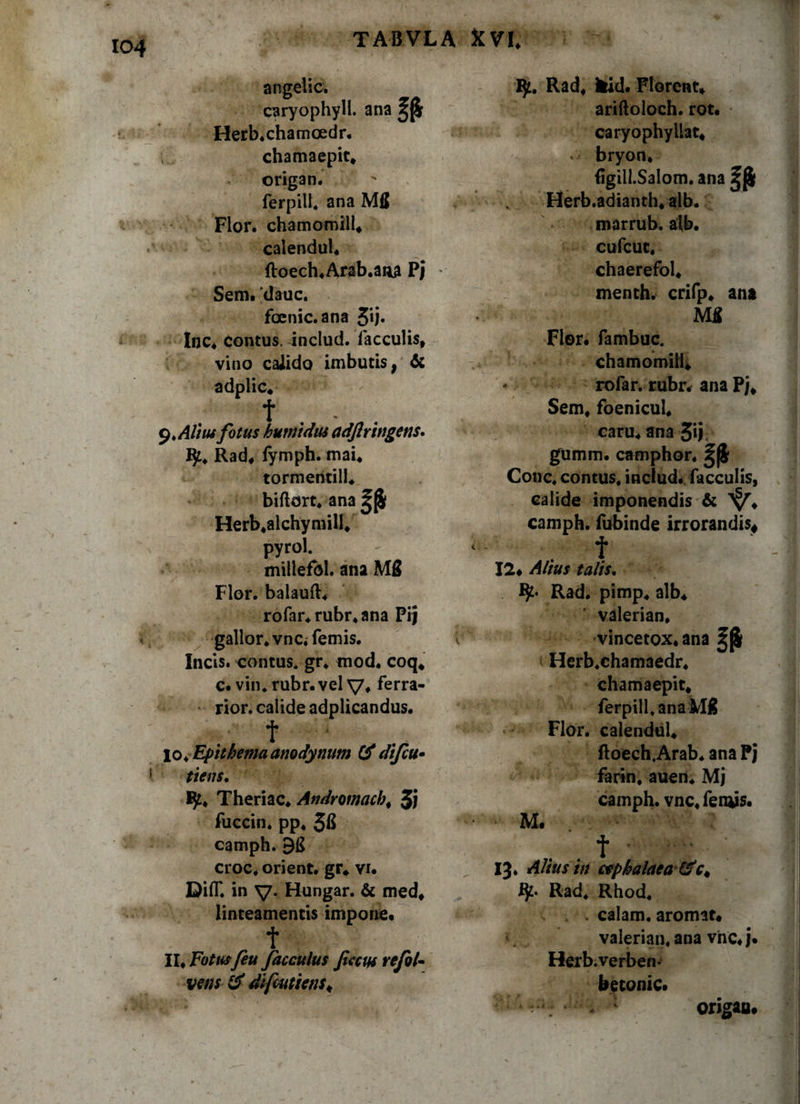 104
TABVLA XVI.
angelic.
caryophyll. ana ℥ß
Herb.chamœdr.
chamaepit.
origan.
ſerpill. ana Mß
Flor. chamomill.
calendul.
ſtoech.Arab.ana Pj
Sem. dauc.
fœnic. ana ʒij.
Inc. contus. includ. ſacculis,
vino calido imbutis, &
adplic.
†
9. Alius fotus humidus adſtringens.
℞. Rad. ſymph. mai.
tormentill.
biſtort. ana ℥ß
Herb.alchymill.
pyrol.
millefol. ana Mß
Flor. balauſt.
roſar. rubr. ana Pij
gallor. vnc. ſemis.
Incis. contus. gr. mod. coq.
c. vin. rubr. vel ▽. ferra-
rior. calide adplicandus.
†
10. Epithema anodynum & diſcu-
tiens.
℞. Theriac. Andromach. ʒj
ſuccin. pp. ʒß
camph. ℈ß
croc. orient. gr. vi.
Diſſ. in ▽. Hungar. & med.
linteamentis impone.
†
11. Fotus ſeu ſacculus ſiccus reſol-
vens & diſcutiens.
℞. Rad. irid. Florent.
ariſtoloch. rot.
caryophyllat.
bryon.
ſigill.Salom. ana ℥ß
Herb.adianth. alb.
marrub. alb.
cuſcut.
chaerefol.
menth. criſp. ana
Mß
Flor. ſambuc.
chamomill.
roſar. rubr. ana Pj.
Sem. foenicul.
caru. ana ʒij
gumm. camphor. ℥ß
Conc. contus. includ. ſacculis,
calide imponendis &
camph. ſubinde irrorandis.
†
12. Alius talis.
℞. Rad. pimp. alb.
valerian.
vincetox. ana ℥ß
Herb.chamaedr.
chamaepit.
ſerpill. ana Mß
Flor. calendul.
ſtoech.Arab. ana Pj
farin. auen. Mj
camph. vnc. ſemis.
M.
†
13. Alius in cephalaea &c.
℞. Rad. Rhod.
calam. aromat.
valerian. ana vnc. j.
Herb.verben.
betonic.
origan.